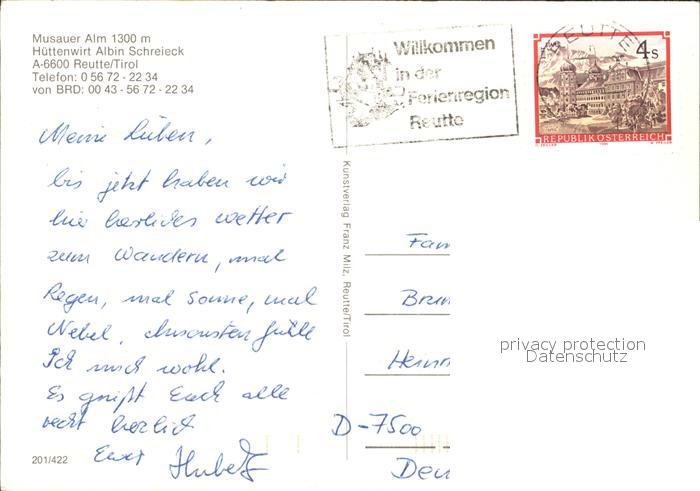 Musauer Alm 1300 m
Hüttenwirt Albin Schreieck
A-6600 Reutte/Tirol
Telefon: 0 56 72 - 22 34
von BRD: 00 43 - 56 72 - 22 34
Willkommen
in der
Ferienregion
Reutte
REUTTE
4 s
REPUBLIK ÖSTERREICH
Meine Lieben,
bis jetzt haben wir
hier herrliches Wetter
zum Wandern, mal
Regen, mal Sonne, mal
Nebel, Ansonsten fühle
Ich mich wohl.
Es grüßt Euch alle
recht herzlich
Euer Hubert
201/422
Kunstverlag Franz Milz, Reutte/Tirol
Fam
Brun
Heinri
D-7500
Deu
privacy protection
Datenschutz